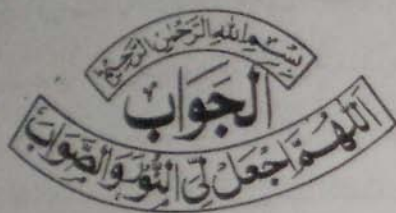 بِسْمِ اللهِ الرَّحْمٰنِ الرَّحِيْمِ
الجَوَاب
اَللّٰهُمَّ اجْعَلْ لِي النُّوْرَ وَالصَّوَابَ